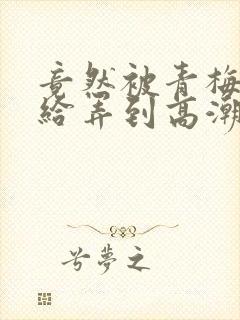 竟然被青梅
给弄到高潮
兮夢之